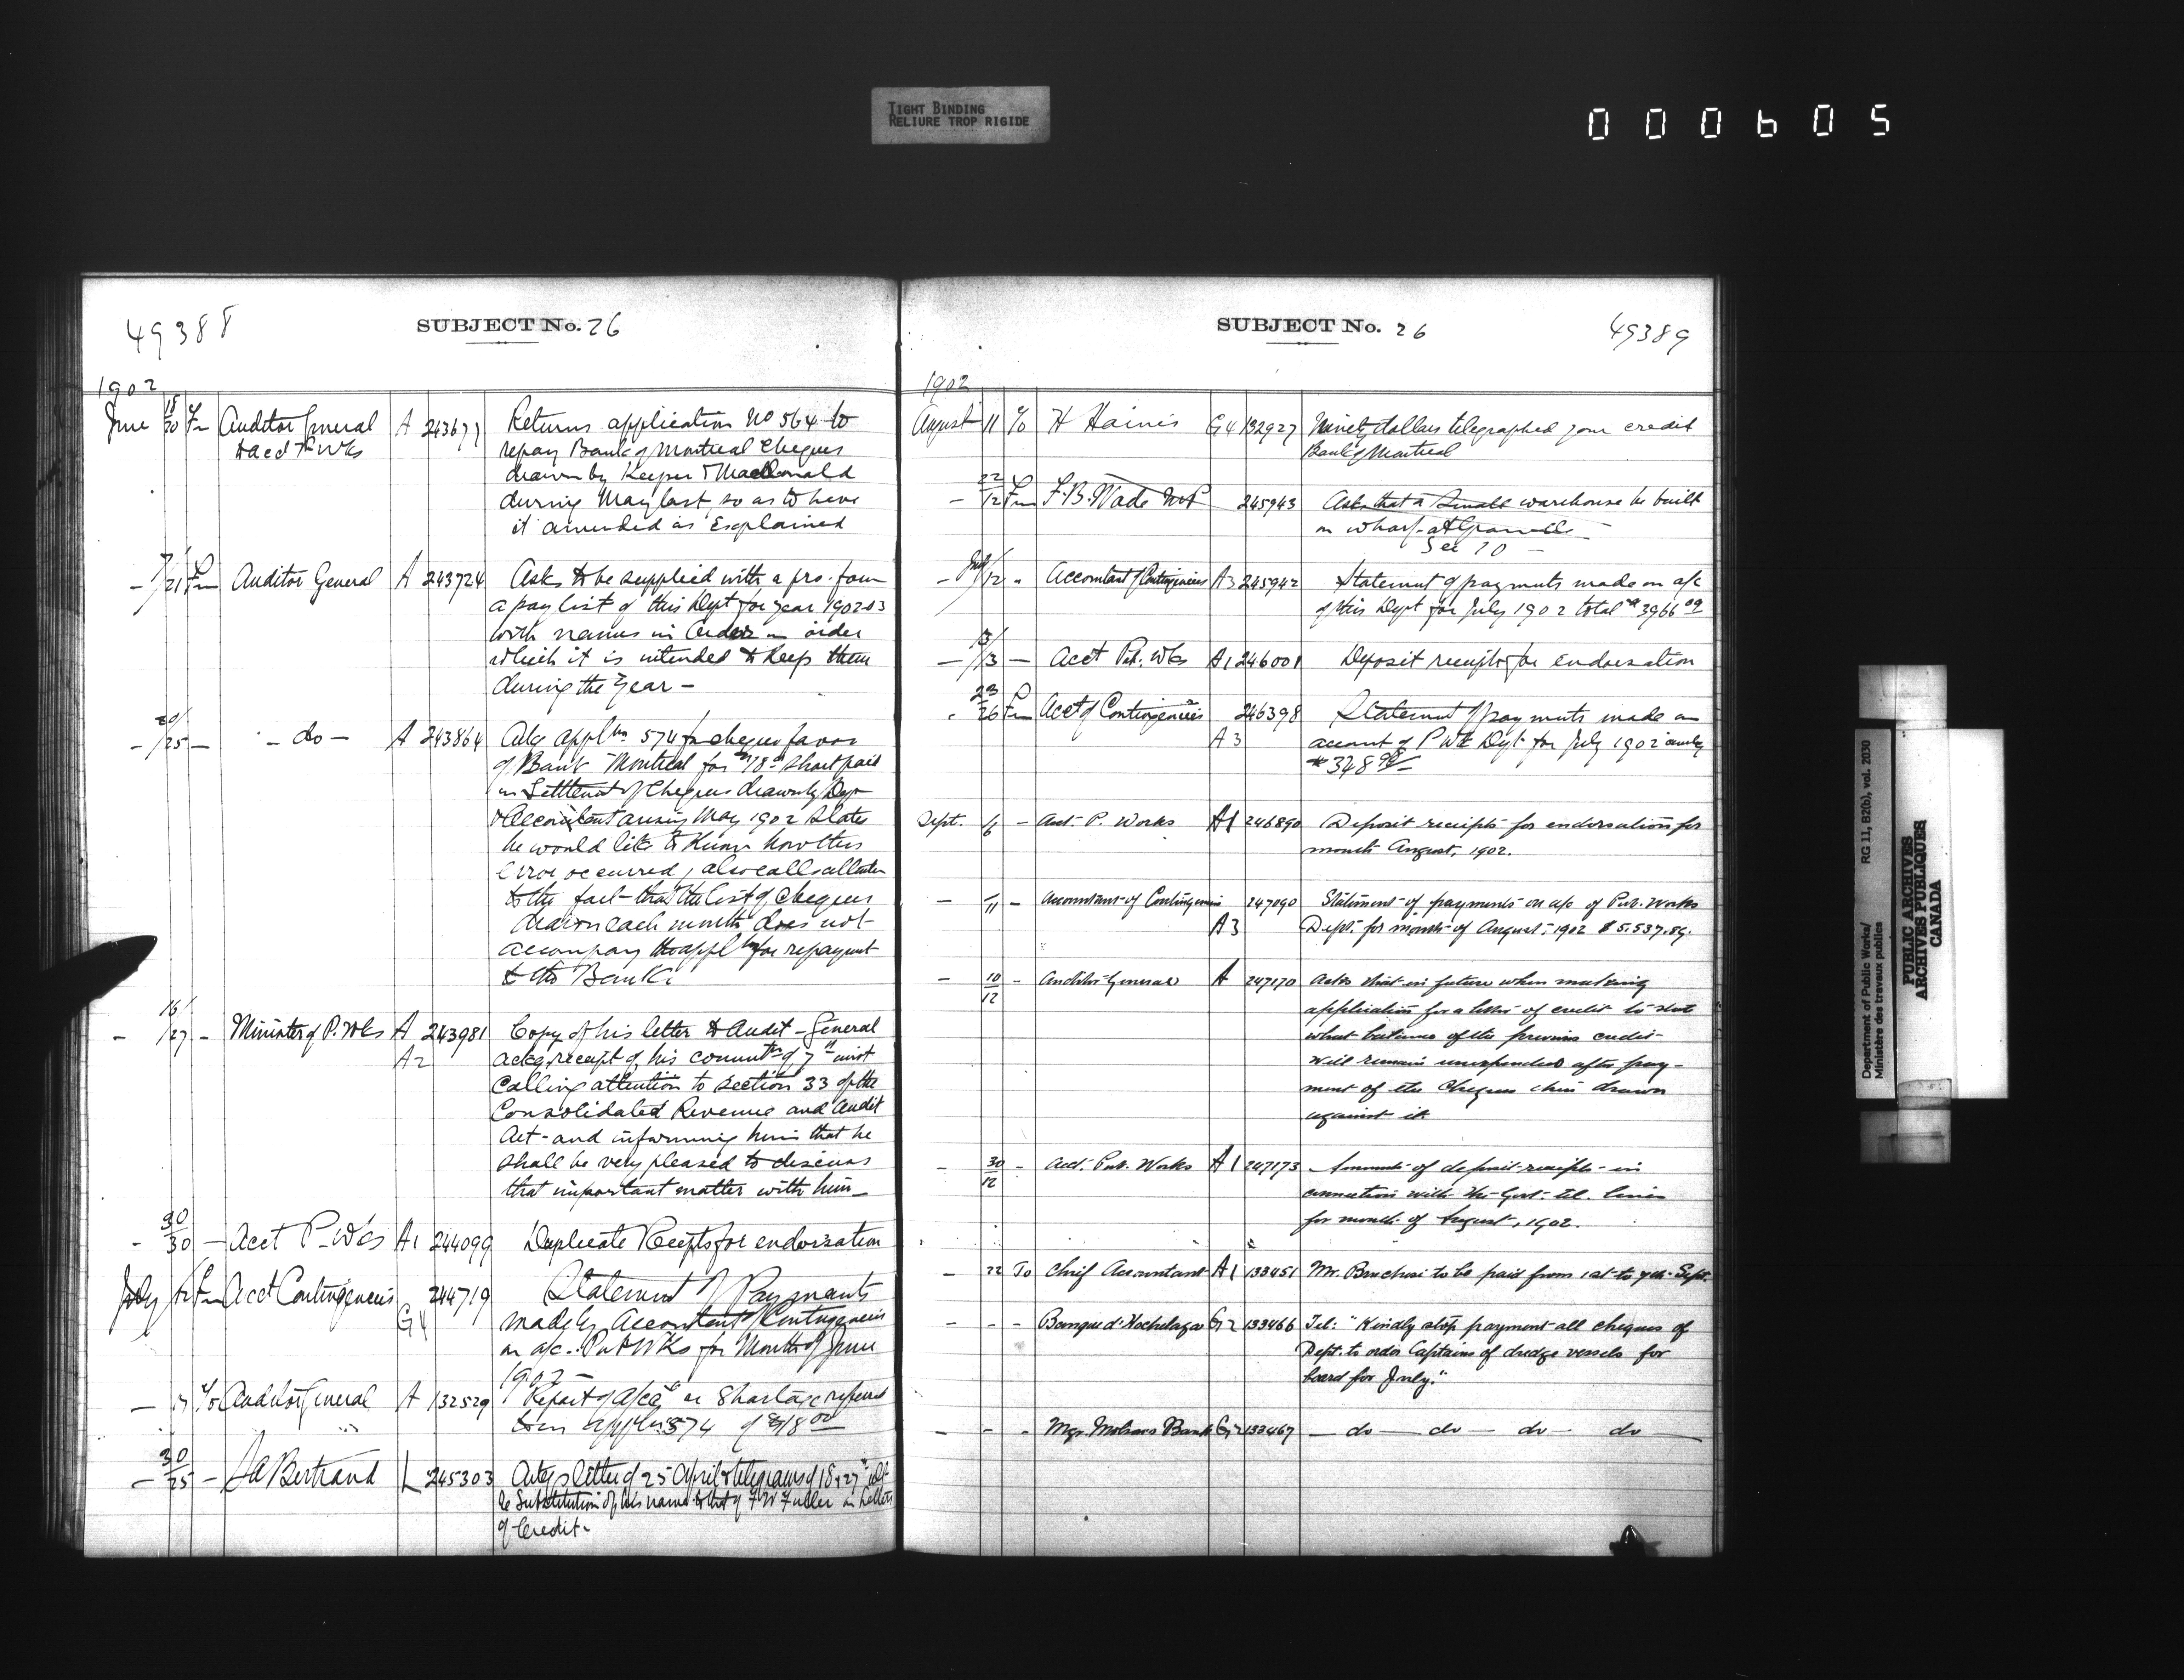 TIGHT BINDING
RELIURE TROP RIGIDE
000605
49388
SUBJECT No. 26
1902
June 18/20 Fm Auditor General A 243677 Returns application No 564 to
repay Bank of Montreal cheques
drawn by Keeper & MacDonald
during May last, so as to have
it amended as Explained
- 7/21 Fm Auditor General A 243724 Asks to be supplied with a pro-form
a pay list of this Dept for year 1902-03
with names in order
which it is intended to keep them
during the Year -
- 20/25 - - do - A 243864 574 for cheque favor
of Bank Montreal for short paid
in Settlement of Cheques drawn by Dep
& Accountant during May 1902 States
he would like to Know how this
Error occurred, also calls attention
to the fact that the list of cheques
drawn each month does not
accompany the for repayment
to the Bank.
- 16/27 - Minister of P. Wks A 243981 Copy of his letter to Audit-General
A2 receipt of his of 7th inst
Calling attention to section 33 of the
Consolidated Revenue and Audit
Act - and informing him that he
shall be very pleased to discuss
that important matter with him -
- 30/30 - Acct P. Wks A1 244099 Duplicate Receipts for endorsation
July Fm Acct Contingencies 244719 Statement of Payments
G4 made by Accountant of Contingencies
on a/c. Pub Wks for Month of June
1902 -
- To Auditor General A 132529 Report of shortage referred
to in 574 of $18.00
- 30/25 - JA Bertrand L 245303 letter of 25 April & telegrams of 18 & 27
re Substitution of his name to that of F W Fuller in Letters
of Credit -
SUBJECT No. 26
49389
1902
August 11 To H Haines G4 132927 Ninety dollars telegraphed your credit
Bank of Montreal
- 22/12 Fm F. B. Wade MP 245943 Asks that a Small warehouse be built
on wharf at Granville
See 10 -
- 12 - Accountant of Contingencies A3 245942 Statement of payments made on a/c
of this Dept for July 1902 total $3966.09
- 13/13 - Acct Pub. Wks A1 246001 Deposit receipts for endorsation
23/26 Fm Acct of Contingencies 246398 Statement of payments made on
A3 account of P Wk Dept for July 1902
Sept. 6 - Acct. P. Works A1 246890 Deposit receipts for endorsation for
month August, 1902.
- 11 - Accountant of Contingencies 247090 Statement of payments on a/c of Pub. Works
A3 Dept. for month of August, 1902 $5.537.89.
- 10/12 - Auditor General A 247170 Asks that in future when making
application for a letter of credit to state
what balance of the previous credit
will remain unexpended after pay-
ment of the cheques then drawn
against it
- 30/12 - Acct. Pub. Works A1 247173 Amounts of deposit receipts in
connection with the Govt. Tel. lines
for month of August, 1902.
- 22 To Chief Accountant A1 133451 Mr. to be paid from 1st to 7th Sept.
- - - Banque d'Hochelaga G2 133466 Tel: "Kindly stop payment all cheques of
Dept. to order Captains of dredge vessels for
board for July."
- - - Mgr. Molsons Bank G2 133467 - do - do - do - do -
Department of Public Works/ RG 11, B2(b), vol. 2030
Ministère des travaux publics
PUBLIC ARCHIVES
ARCHIVES PUBLIQUES
CANADA